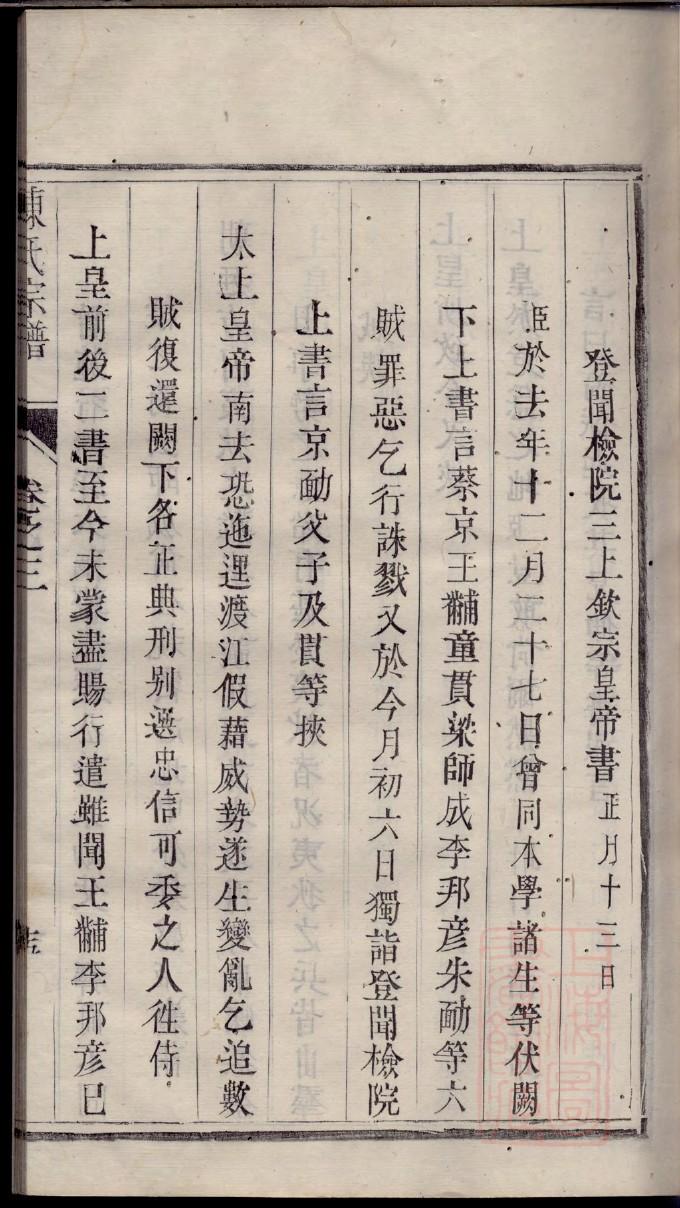 登聞檢院三上欽宗皇帝書正月十三日
臣於去年十二月二十七日曾同本學諸生等伏闕
下上書言蔡京王黼童貫梁師成李邦彥朱勔等六
賊罪惡乞行誅戮又於今月初六日獨詣登聞檢院
上書言京勔父子及貫等挾
太上皇帝南去恐迤逕渡江假藉威勢遂生變亂乞追數
賊復還闕下各正典刑别選忠信可委之人徃侍
上皇前後二書至今未蒙盡賜行遣雖聞王黼李邦彥已
陳氏宗譜
卷之三